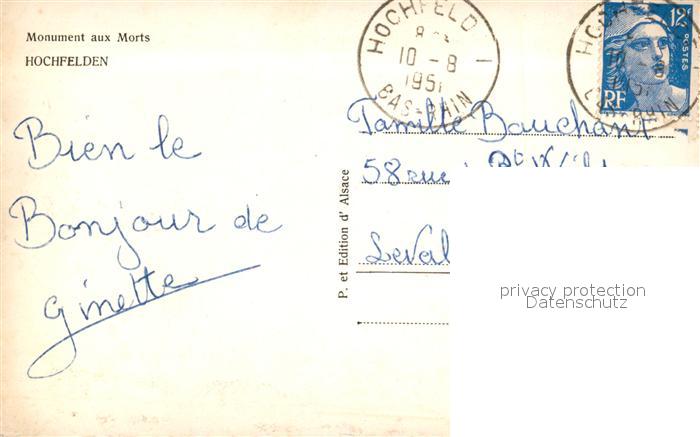 Monument aux Morts
HOCHFELDEN
HOCHFELD
10 - 8
1951
BAS-RHIN
12F
POSTES
RF
Bien le
Bonjour de
Ginette
P. et Edition d' Alsace
Famille Bauchant
58 rue
Leval
privacy protection
Datenschutz